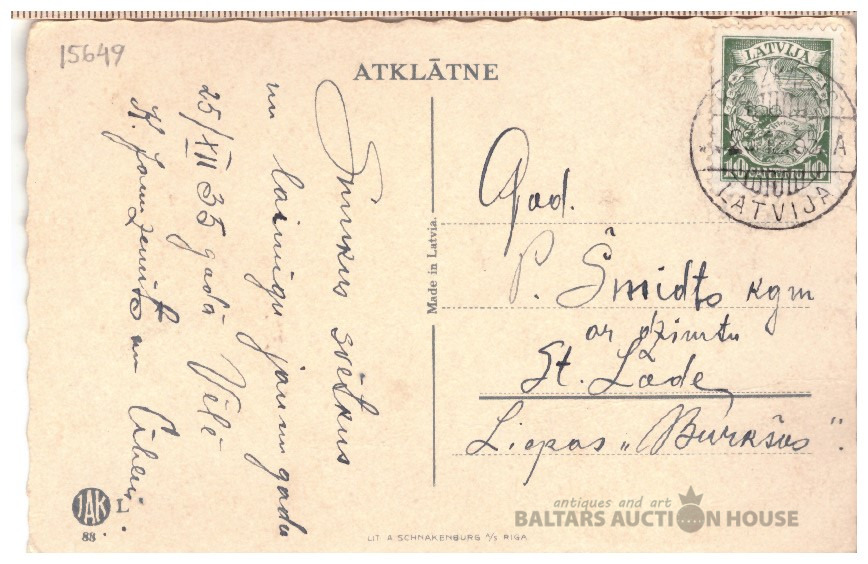 15649
ATKLĀTNE
LATVIJA
10 10
LATVIJA
A
Smukus svētkus
un laimīgu jaunu gadu
25/XII 35 gadā Vēlē
K.
Made in Latvia.
God.
P. Šmidts kgm
ar dzimtu
St. Lāde
Liepas „Burkšas".
JAK L
88
LIT A SCHNAKENBURG A/S RIGA
antiques and art
BALTARS AUCTION HOUSE